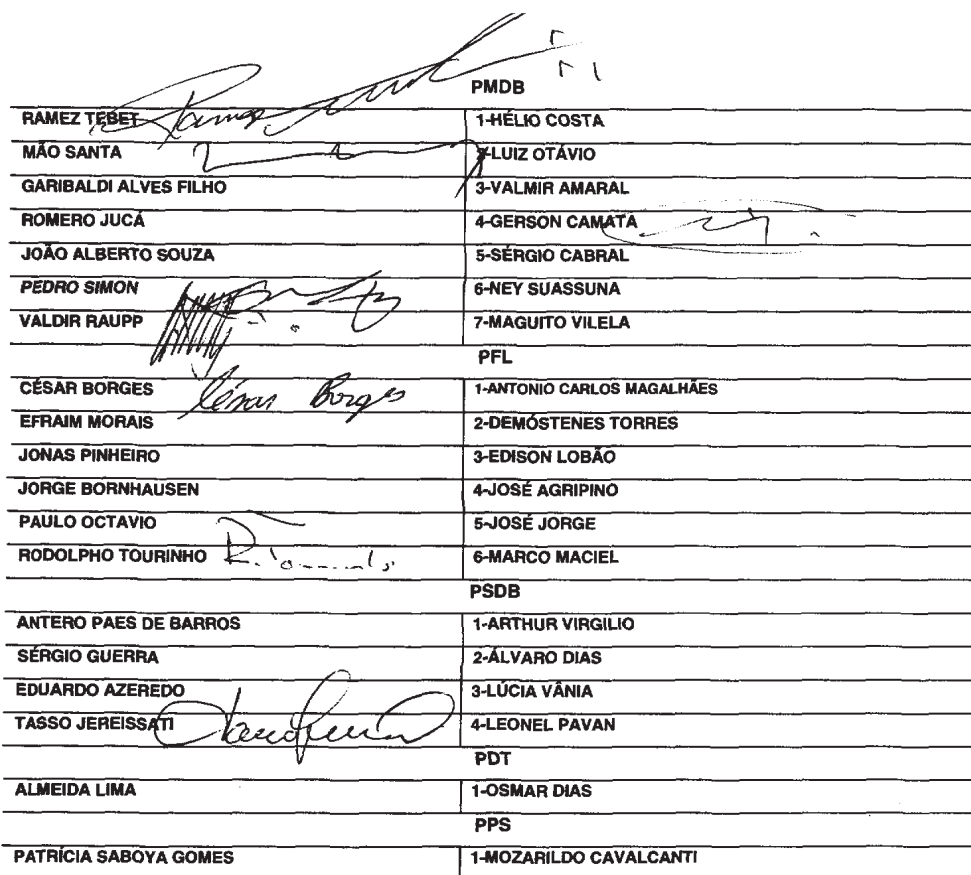 PMDB
RAMEZ TEBET 1-HÉLIO COSTA
MÃO SANTA -LUIZ OTÁVIO
GARIBALDI ALVES FILHO 3-VALMIR AMARAL
ROMERO JUCÁ 4-GERSON CAMATA
JOÃO ALBERTO SOUZA 5-SÉRGIO CABRAL
PEDRO SIMON 6-NEY SUASSUNA
VALDIR RAUPP 7-MAGUITO VILELA
PFL
CÉSAR BORGES César Borges 1-ANTONIO CARLOS MAGALHÃES
EFRAIM MORAIS 2-DEMÓSTENES TORRES
JONAS PINHEIRO 3-EDISON LOBÃO
JORGE BORNHAUSEN 4-JOSÉ AGRIPINO
PAULO OCTAVIO 5-JOSÉ JORGE
RODOLPHO TOURINHO 6-MARCO MACIEL
PSDB
ANTERO PAES DE BARROS 1-ARTHUR VIRGILIO
SÉRGIO GUERRA 2-ÁLVARO DIAS
EDUARDO AZEREDO 3-LÚCIA VÂNIA
TASSO JEREISSATI 4-LEONEL PAVAN
PDT
ALMEIDA LIMA 1-OSMAR DIAS
PPS
PATRÍCIA SABOYA GOMES 1-MOZARILDO CAVALCANTI